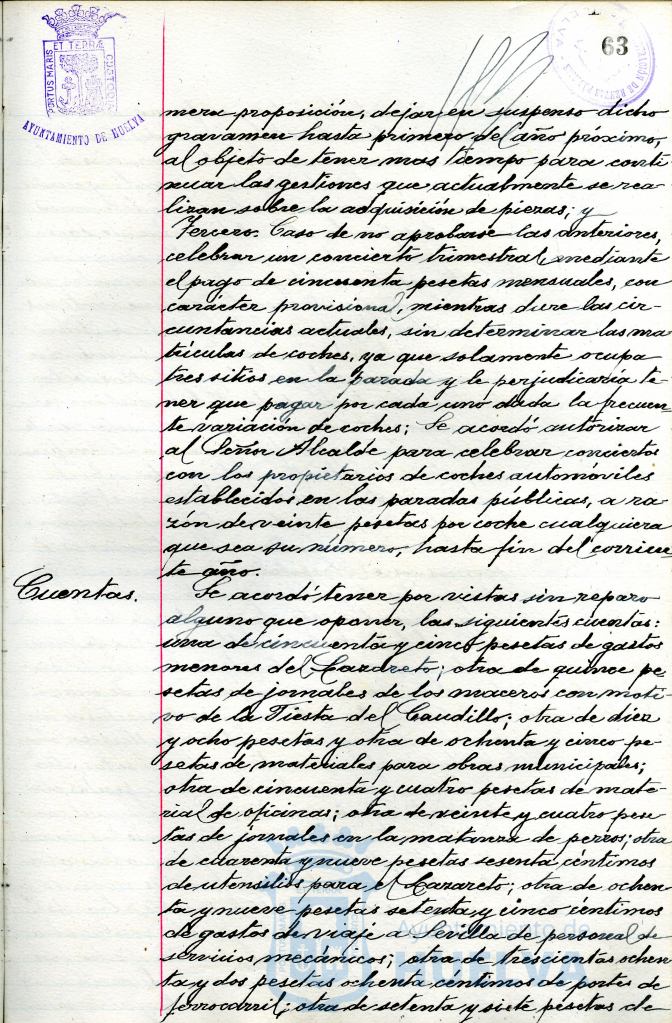 63
PORTUS MARIS ET TERRÆ CUSTODIA
AYUNTAMIENTO DE HUELVA
mera proposición, dejar en suspenso dicho
gravamen hasta primero del año próximo,
al objeto de tener mas tiempo para conti
nuar las gestiones que actualmente se rea-
lizan sobre la adquisición de piezas; y
Tercero. Caso de no aprobarse las anteriores,
celebrar un concierto trimestral, mediante
el pago de cincuenta pesetas mensuales, con
carácter provisional, mientras dure las cir-
cuntancias actuales, sin determinar las ma
trículas de coches, ya que solamente ocupa
tres sitios en la parada y le perjudicaría te-
ner que pagar por cada uno dada la frecuen-
te variación de coches; Se acordó autorizar
al Señor Alcalde para celebrar conciertos
con los propietarios de coches automóviles
establecidos en las paradas públicas, a ra-
zón de veinte pesetas por coche cualquiera
que sea su número, hasta fin del corrien-
te año.
Cuentas.
Se acordó tener por vistas sin reparo
alguno que oponer, las siguientes cuentas:
una de cincuenta y cinco pesetas de gastos
menores del Lazareto; otra de quince pe-
setas de jornales de los maceros con moti-
vo de la Fiesta del Caudillo; otra de diez
y ocho pesetas y otra de ochenta y cinco pe-
setas de materiales para obras municipales;
otra de cincuenta y cuatro pesetas de mate-
rial de oficinas; otra de veinte y cuatro pese
tas de jornales en la matanza de perros; otra
de cuarenta y nueve pesetas sesenta céntimos
de utensilios para el Lazareto; otra de ochen-
ta y nueve pesetas setenta y cinco céntimos
de gastos de viaje a Sevilla de personal de
servicios mecánicos; otra de trescientas ochen-
ta y dos pesetas ochenta céntimos de portes de
ferrocarril; otra de setenta y siete pesetas de
Ayuntamiento de
HUELVA